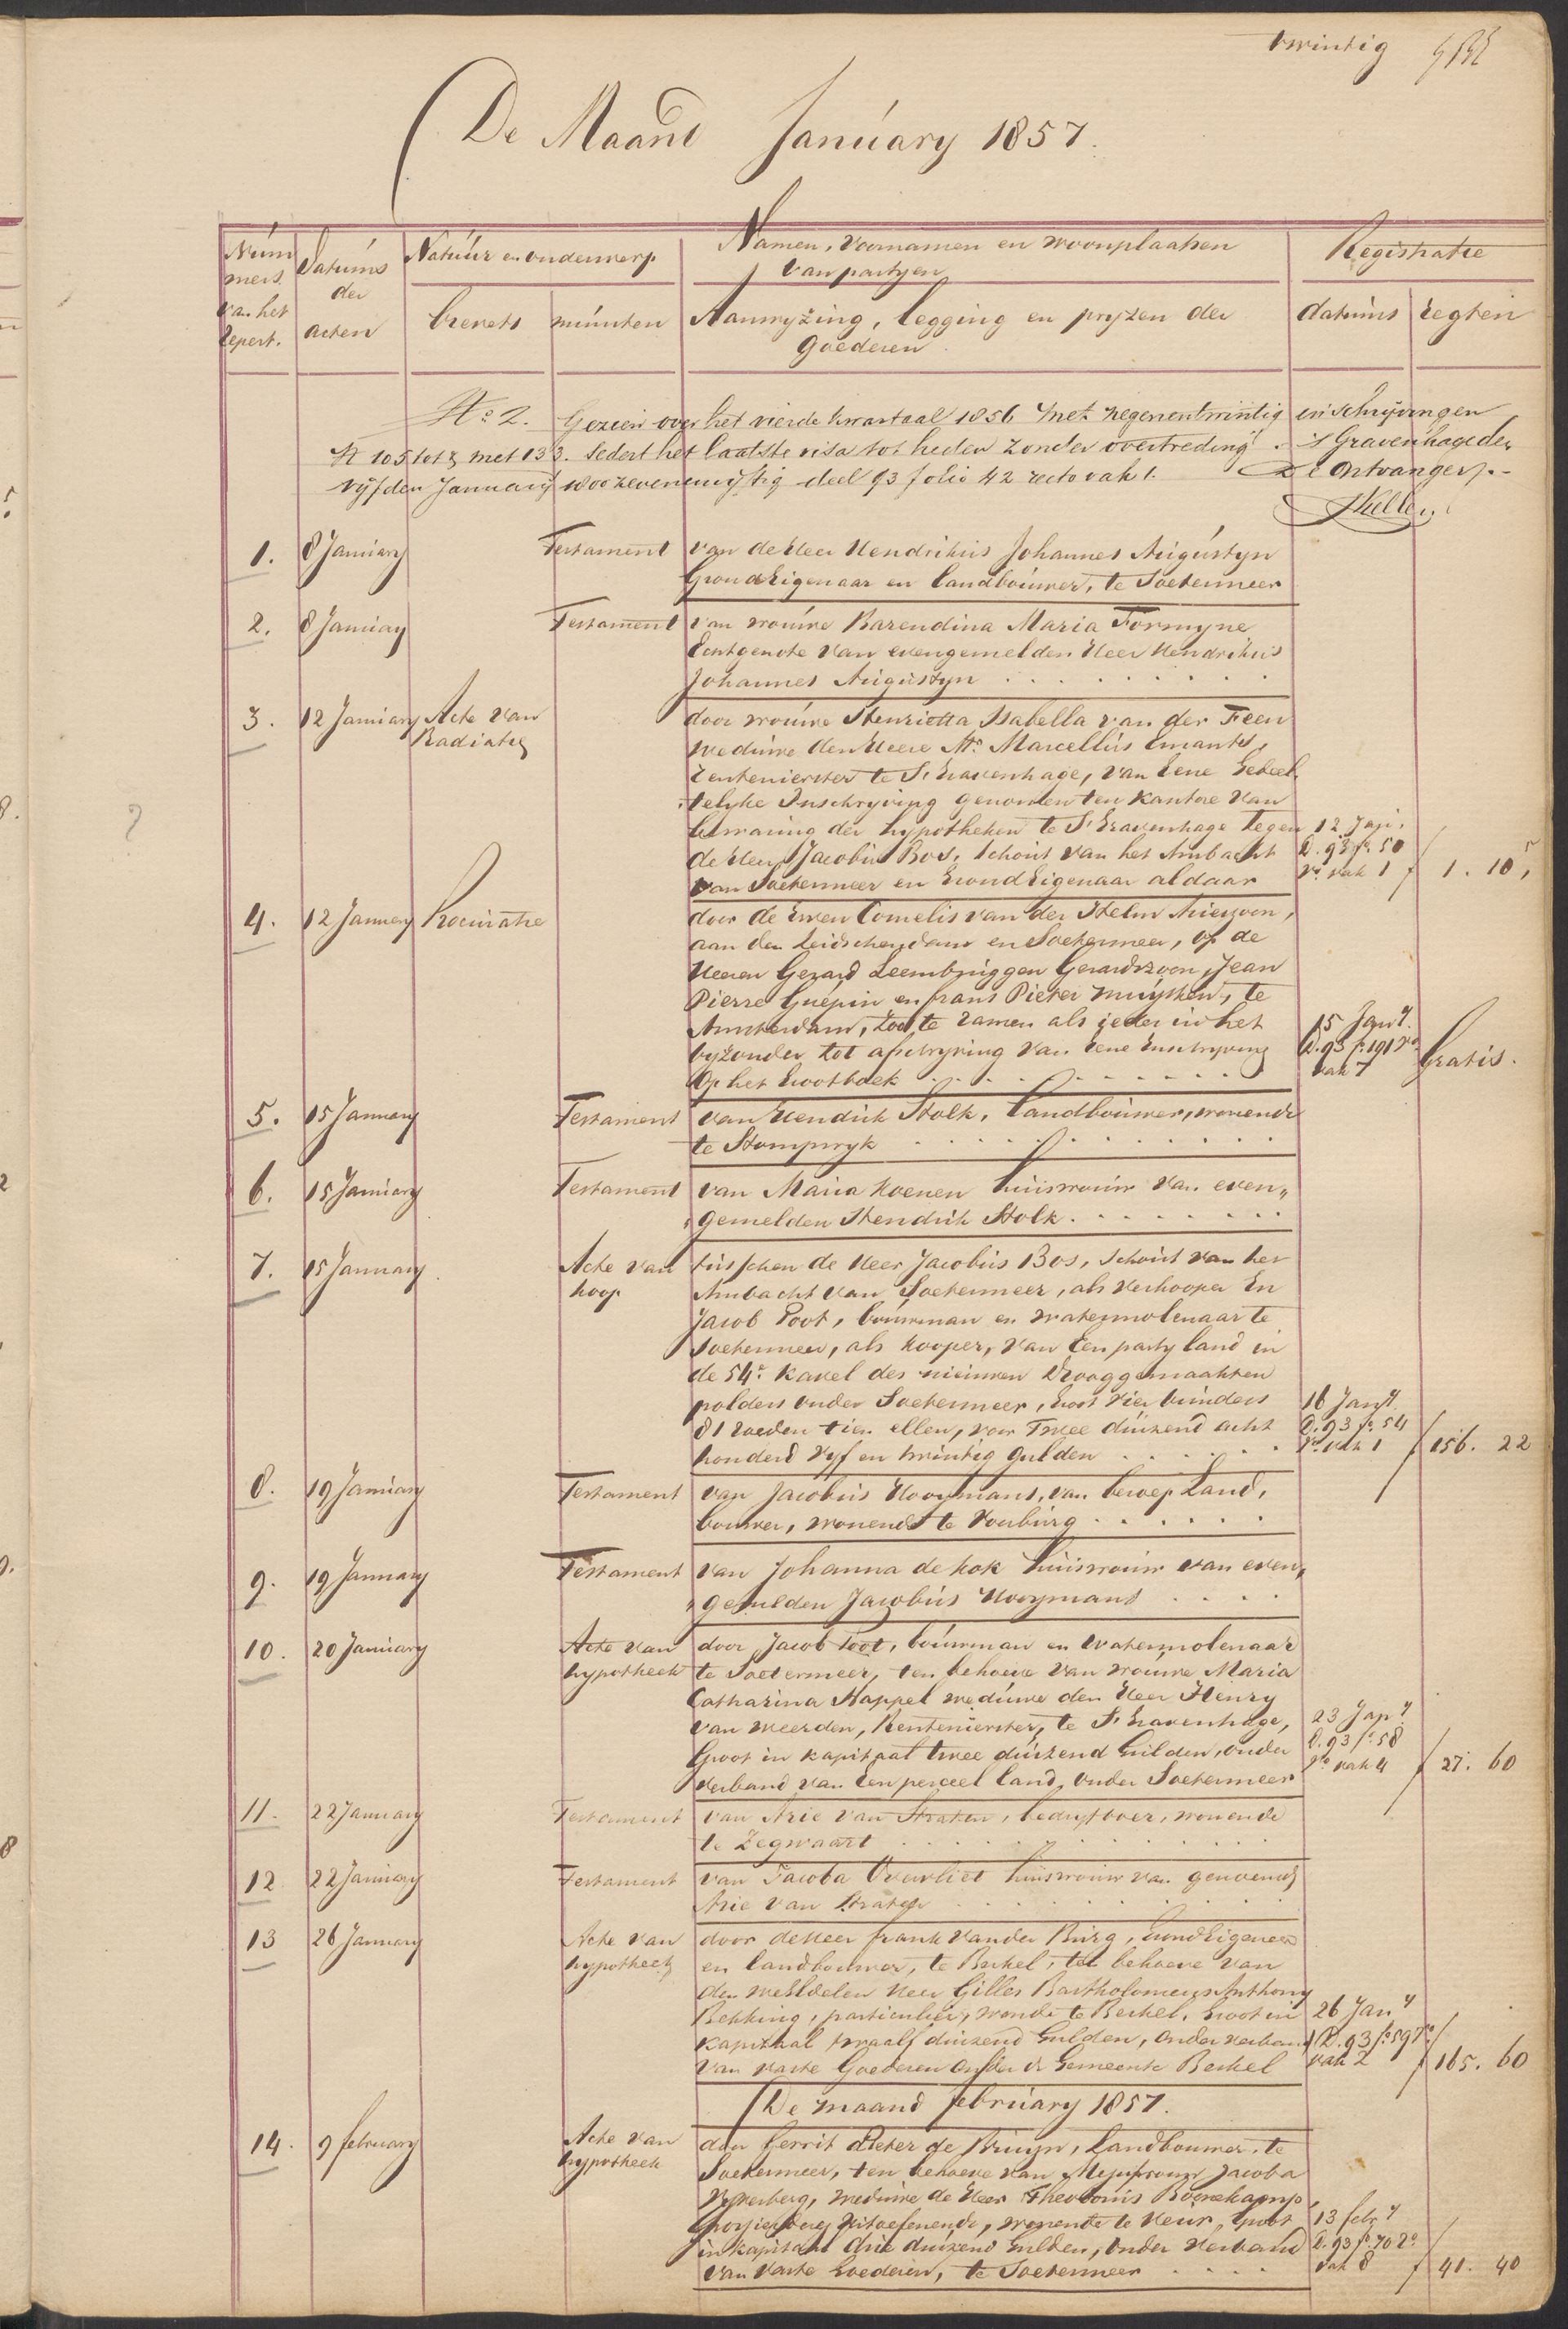 twintig
De Maand January 1857.
Num
mers
van het
repert.
Datums
der
acten
Natuur en onderwerp
brevets
minuten
Namen, voornamen en woonplaatsen
van partyen
Aanwyzing, legging en pryzen der
Goederen
Registratie
datums
regten
No. 2. Gezien over het vierde kwartaal 1856 met negenentwintig inschryvingen
N 105 tot & met 133. Sedert het laatste visa tot heden zonder overtreding. 's Gravenhage den
vyfden January 1800 zevenenvyftig deel 93 folio 42 recto vak 1. De Ontvanger
1. 8 January Testament van de Heer Hendrikus Johannes Augustyn
GrondEigenaar en landbouwer, te Soetermeer
2. 8 January Testament van vrouwe Barendina Maria Formyne
Echtgenote van evengemelden Heer Hendrikus
Johannes Augustyn
3. 12 January Acte van
Radiatie
door vrouwe Henrietta Isabella van der Feen
weduwe den Heere Mr. Marcellus Emants,
rentenierster te S'Gravenhage, van Eene Gedeel
telyke Inschryving genomen ten kantore van
bewaring der hypotheken te S'Gravenhage tegen
de Heer Jacobus Bos, Schout van het Ambacht
van Soetermeer en GrondEigenaar aldaar
12 Jan.
D. 93 fo. 50
vo. vak 1 f 1. 10,5
4. 12 January Procuratie door de Erven Cornelis van der Helm Ariezoon,
aan den Leidschendam en Soetermeer, op de
Heeren Gerard Leembruggen Gerardszoon, Jean
Pierre Guépin en frans Pieter Muysken, te
Amsterdam, zoo te zamen als ieder in het
byzonder tot afschryving van Eene Inschryving
Op het Grootboek
15 Jany.
D. 93 f. 191 vo
vak 7 Gratis.
5. 15 January Testament van Hendrik Stolk, landbouwer, wonende
te Stompwyk
6. 15 January Testament van Maria Koenen huisvrouw van even„
„gemelden Hendrik Stolk.
7. 15 January Acte van
koop
tusschen de Heer Jacobus Bos, Schout van het
Ambacht van Soetermeer, als Verkooper En
Jacob Poot, bouwman en watermolenaar te
Soetermeer, als kooper, van Een party land in
de 54e kavel des nieuwen Drooggemaakten
polders onder Soetermeer, groot vier bunders
81 roeden tien ellen, voor Twee duizend acht
honderd vyf en twintig gulden
16 Jany.
D. 93 fo. 54
vo. vak 1 f 156. 22
8. 19 January Testament van Jacobus Hooymans, van beroep Land,
bouwer, wonende te Voorburg
9. 19 January Testament van Johanna de Kok huisvrouw van even„
„gemelden Jacobus Hooymans
10. 20 January Acte van
hypotheek
door Jacob Poot, bouwman en watermolenaar
te Soetermeer, ten behoeve van vrouwe Maria
Catharina Kappel weduwe den Heer Henry
van Weerden, Rentenierster, te S'Gravenhage,
Groot in kapitaal twee duizend Gulden, onder
verband van Een perceel land, onder Soetermeer
23 Jany.
D. 93 fo. 58
vo vak 4 f 27. 60
11. 22 January Testament van Arie van Straten, bedryfboer, wonende
te Zegwaart
12 22 January Testament van Jacoba Overvliet huisvrouw van genoemde
Arie van Straten
13 26 January Acte van
hypotheek
door de Heer frank van der Burg, GrondEigenaar
en landbouwer, te Berkel, ten behoeve van
den WelEdelen Heer Gilles Bartholomeus Anthony
Bekking, particulier, wonende te Berkel, Groot in
kapitaal twaalf duizend Gulden, Onder verband
van vaste Goederen Onder de Gemeente Berkel
26 Jany
D. 93 fo. 59 vo
vak 2 f 165. 60
De maand february 1857.
14. 9 february Acte van
hypotheek
door Gerrit Pieter de Bruyn, landbouwer, te
Soetermeer, ten behoeve van Mejufvrouw Jacoba
weduwe de Heer Theodorus Boonekamp,
wonende te Groot
in kapitaal drie duizend Gulden, Onder Verband
van Vaste Goederen, te Soetermeer
13 feby
D. 93 fo. 70 vo
vak 8 f 41. 40